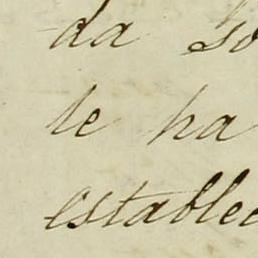 da so
le ha
establec